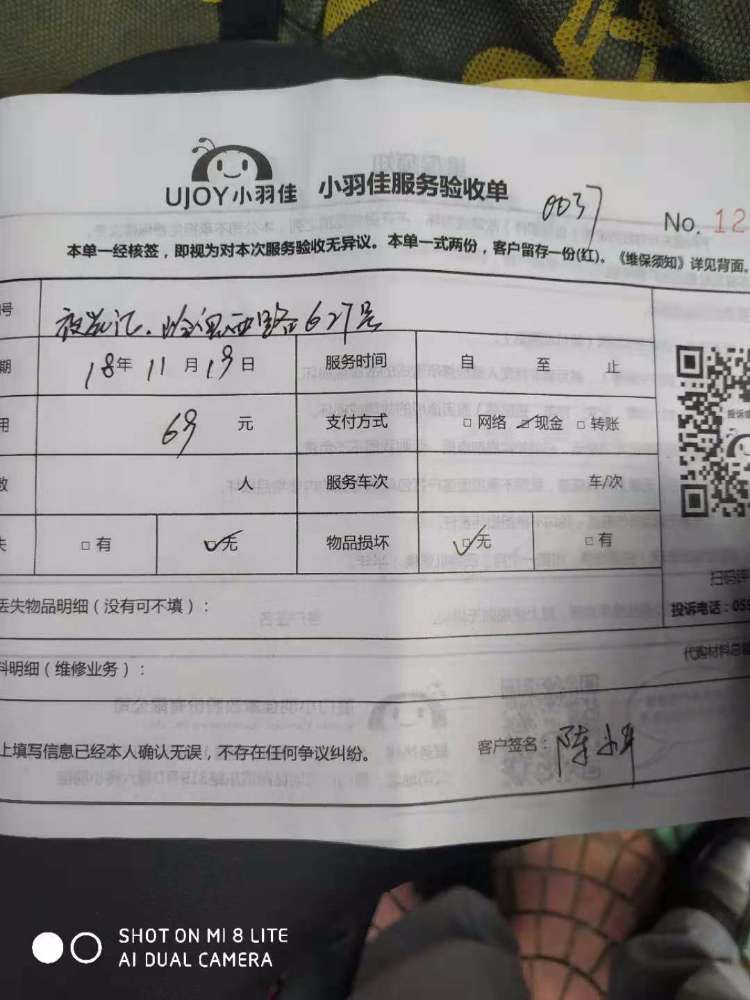 UJOY小羽佳 小羽佳服务验收单
0037
No. 12
本单一经核签，即视为对本次服务验收无异议。本单一式两份，客户留存一份(红)。《维保须知》详见背面。
号 路627号
期 18年 11月 19日 服务时间 自 至 止
用 69 元 支付方式 □网络 ☑现金 □转账
数 人 服务车次 车/次
失 □有 ☑无 物品损坏 ☑无 □有
扫码
丢失物品明细（没有可不填）：
投诉电话：059
代购材料总
料明细（维修业务）：
上填写信息已经本人确认无误，不存在任何争议纠纷。
客户签名：陈
SHOT ON MI 8 LITE
AI DUAL CAMERA